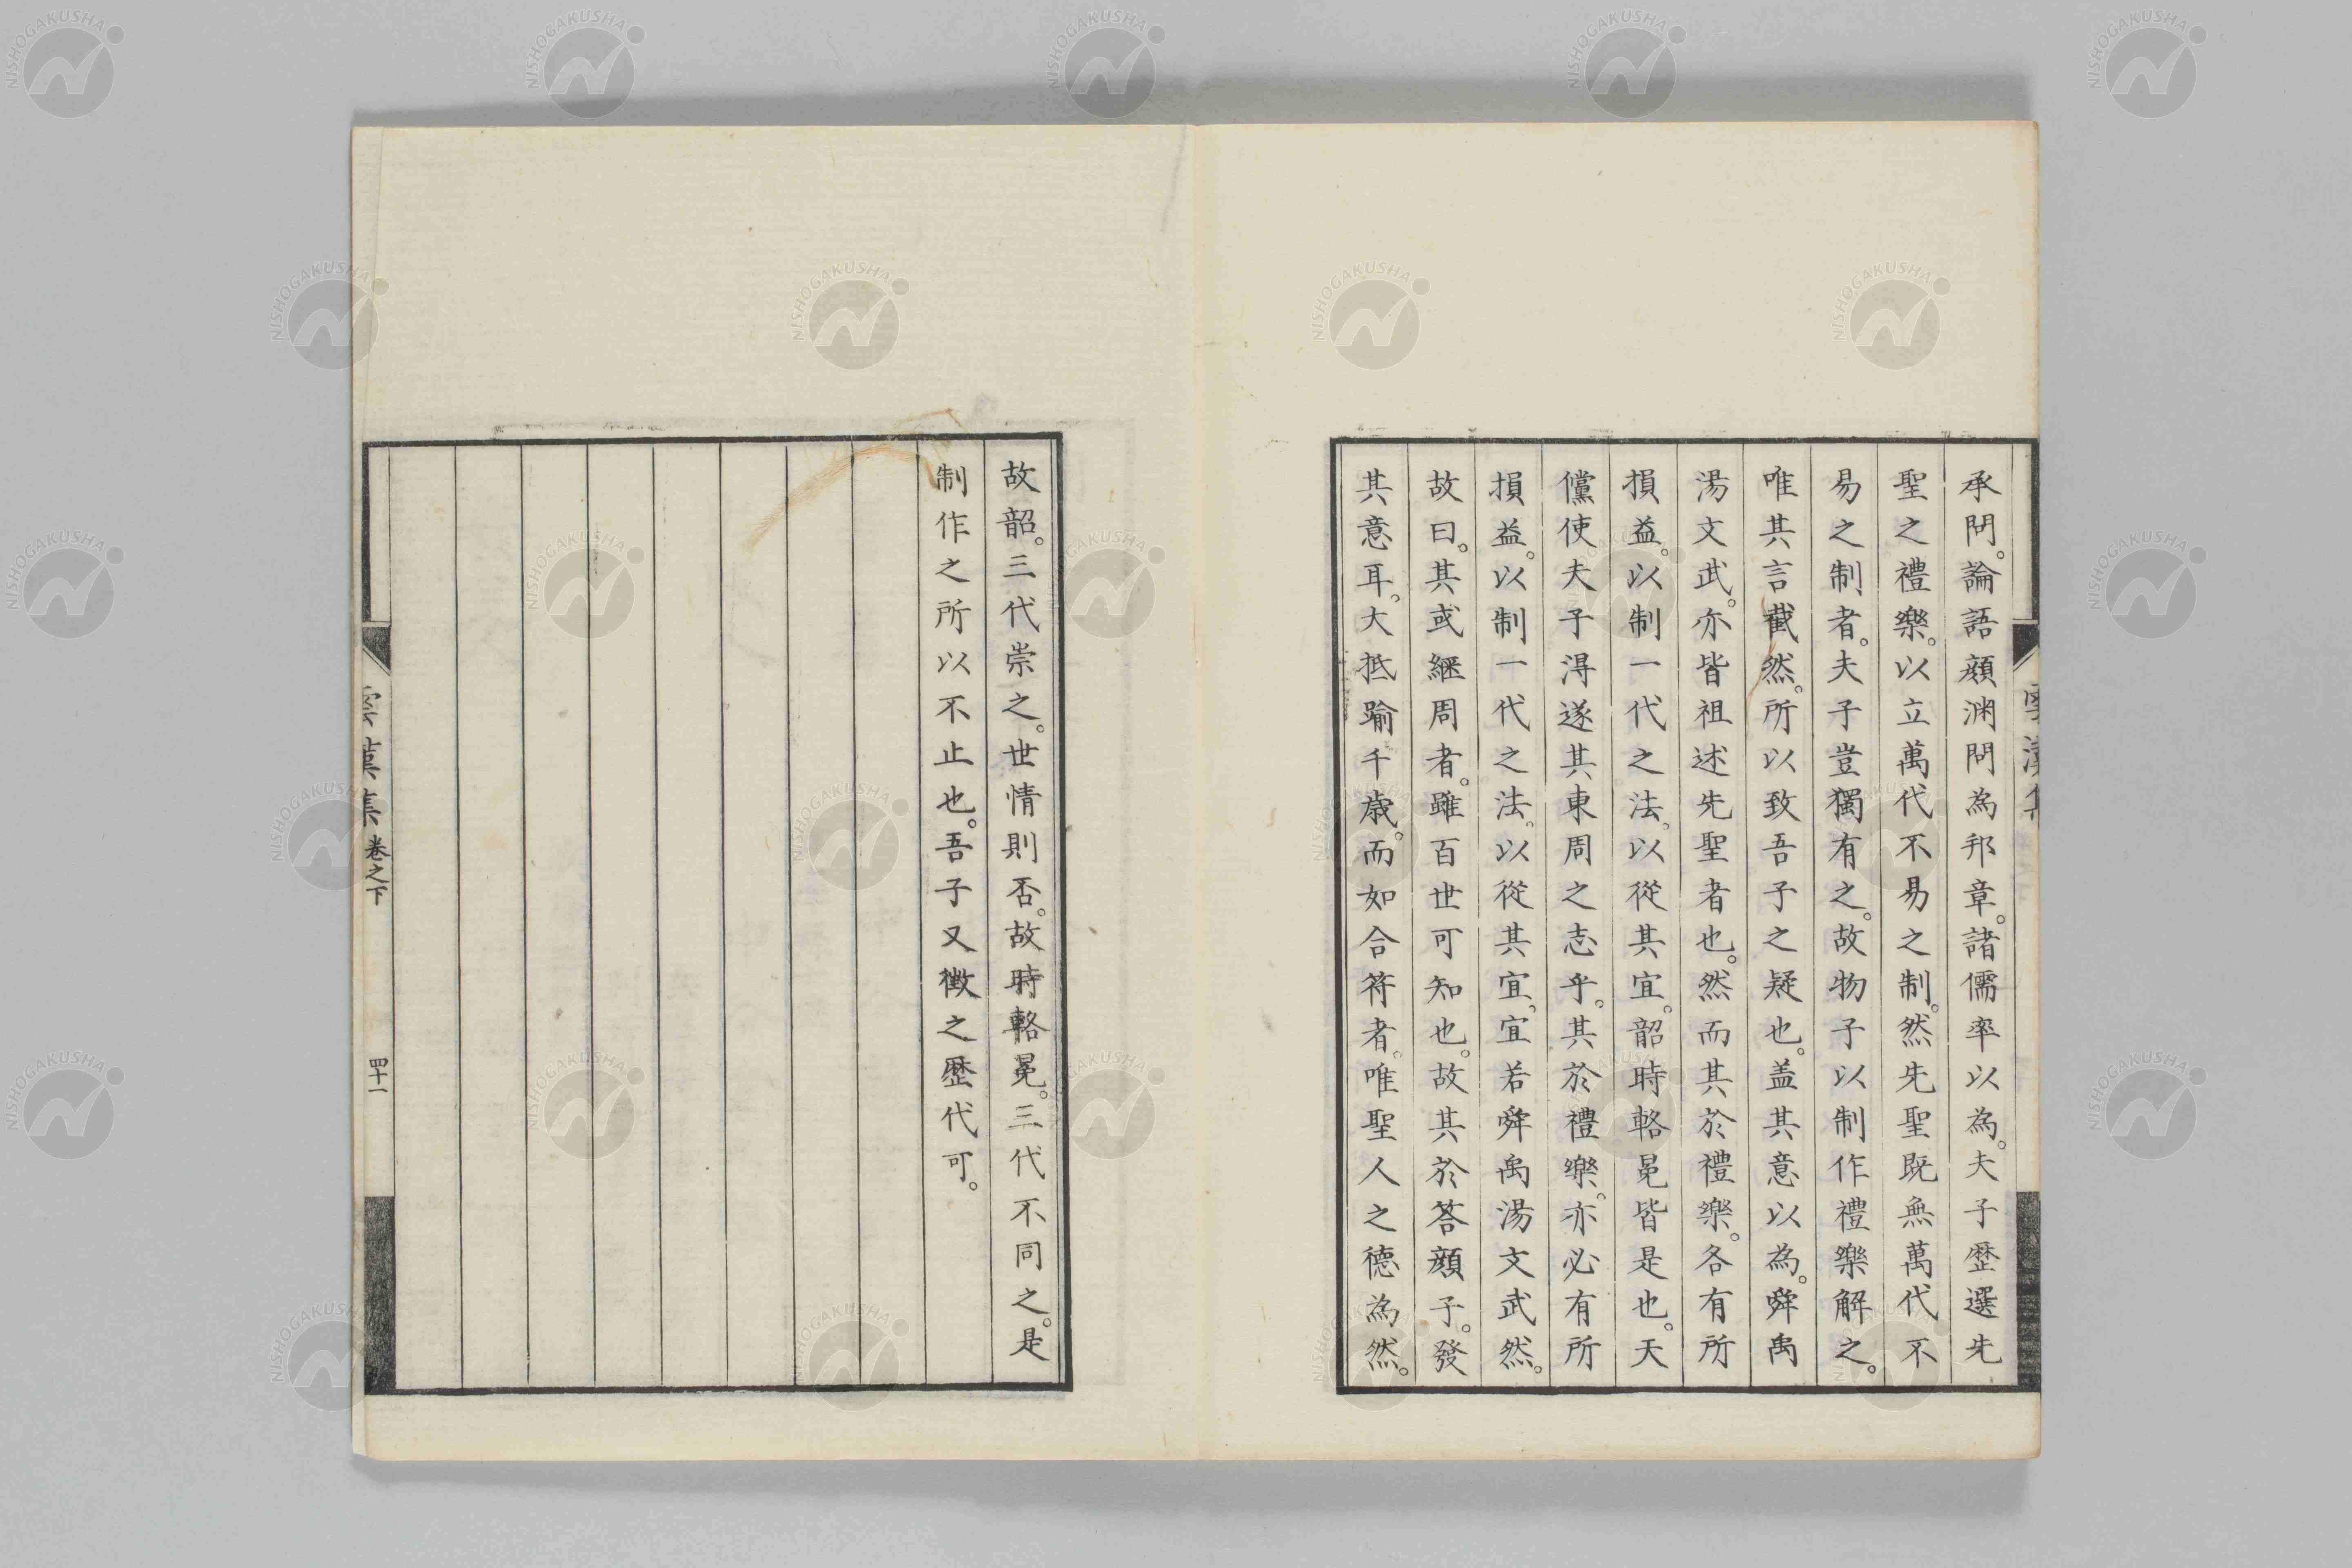 承問。論語顔渕問為邦章。諸儒率以為。夫子歴選先
聖之禮樂。以立萬代不易之制。然先聖既無萬代不
易之制者。夫子豈獨有之。故物子以制作禮樂解之。
唯其言截然。所以致吾子之疑也。盖其意以為。舜禹
湯文武。亦皆祖述先聖者也。然而其於禮樂。各有所
損益。以制一代之法。以從其宜。韶時輅冕皆是也。天
儻使夫子得遂其東周之志乎。其於禮樂。亦必有所
損益。以制一代之法。以從其宜。宜若舜禹湯文武然。
故曰。其或繼周者。雖百世可知也。故其於答顔子。發
其意耳。大抵踰千歳。而如合符者。唯聖人之德為然。
故韶。三代崇之。世情則否。故時輅冕。三代不同之。是
制作之所以不止也。吾子又徴之歴代可。
漢集 卷之下
四十一
NISHOGAKUSHA